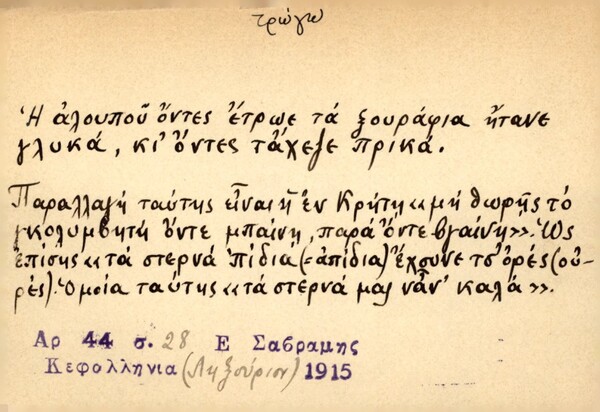 τρώγω
Ἡ ἀλουποῦ ὄντες ἔτρωε τά ξουράφια ἤτανε
γλυκά, κι' ὄντες τἄχεζε πρικά.
Παραλλαγή ταύτης εἶναι ἡ ἐν Κρήτῃ «μή θωρῇς τό
γκολυμβητή ὄντε μπαίνῃ, παρά ὄντε βγαίνῃ». Ὡς
ἐπίσης «τά στερνά 'πίδια (=ἀπίδια) ἔχουνε τσ' ὀρές (οὐ-
ρές). Ὁμοία ταύτης «τά στερνά μας νἆν' καλά».
Αρ 44 σ. 28 Ε Σαβραμης
Κεφολληνια (Ληξούριον) 1915